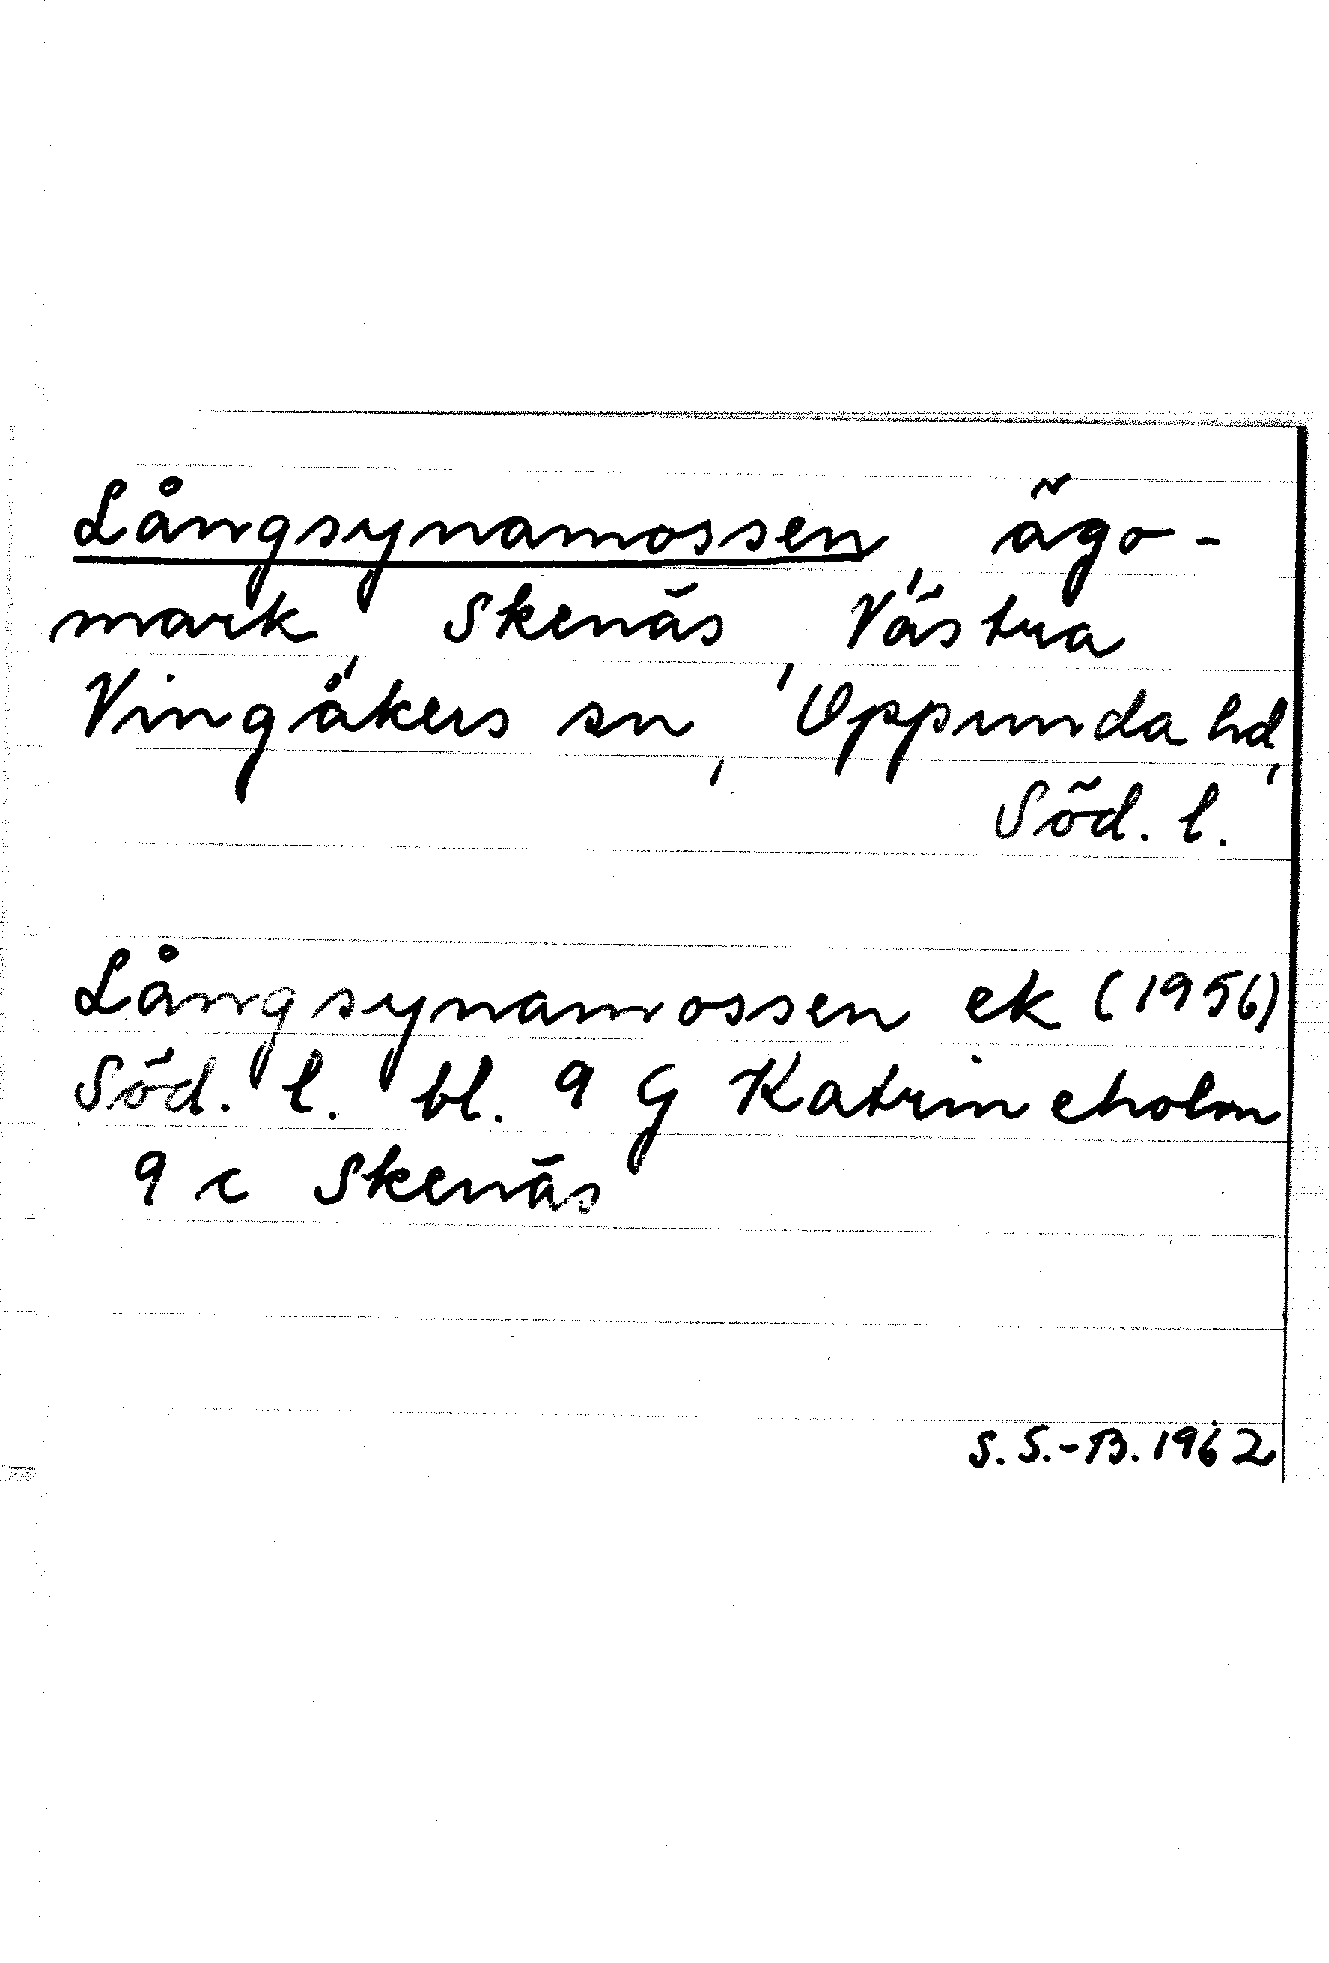 Långsynamossen, ägo-
mark, Skenäs, Västra
Vingåkers sn, Oppunda hd,
Söd. l.
Långsynamossen ek (1956)
Söd. l. bl. 9 G Katrineholm
9 c Skenäs
S. S.-B. 1962